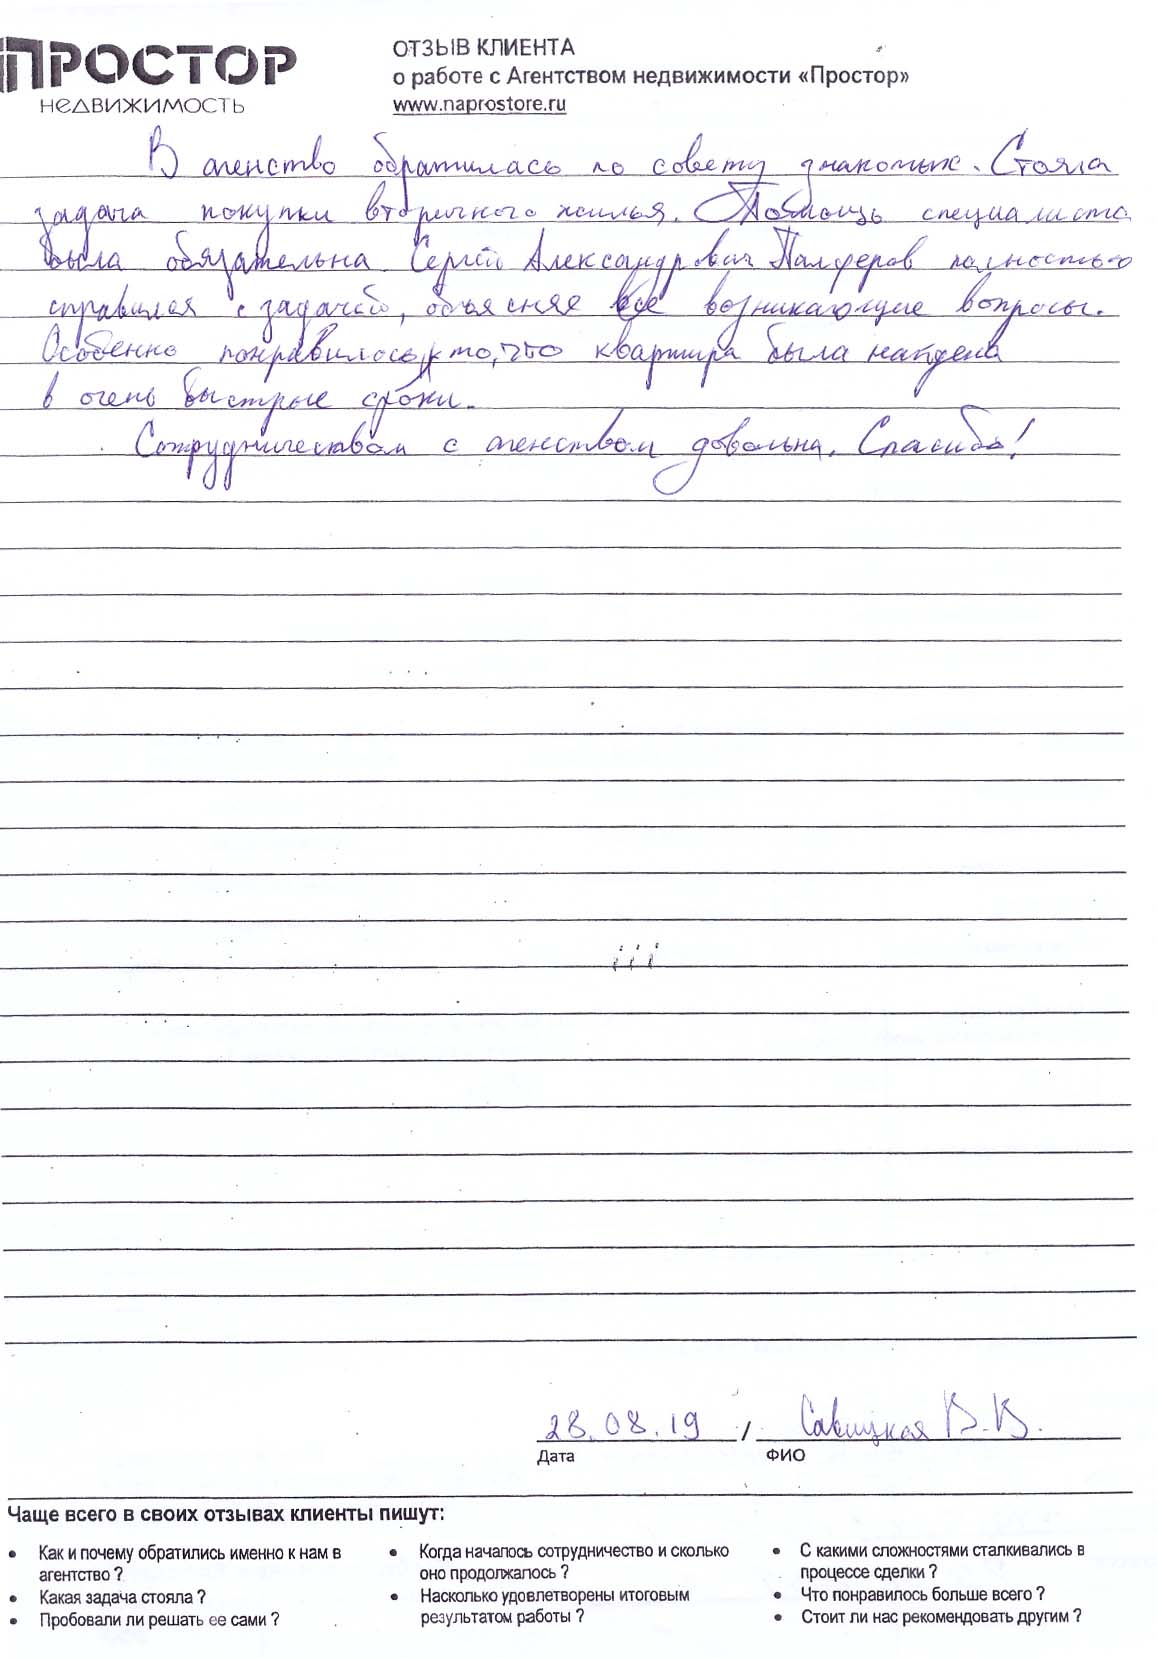 ПРОСТОР
НЕДВИЖИМОСТЬ
ОТЗЫВ КЛИЕНТА
о работе с Агентством недвижимости «Простор»
www.naprostore.ru
В агенство обратилась по совету знакомых. Стояла
задача покупки вторичного жилья. Помощь специалиста
была обязательна Сергей Александрович Палферов полностью
справился с задачей, объясняя все возникающие вопросы.
Особенно понравилось то, что квартира была найдена
в очень быстрые сроки.
Сотрудничеством с агенством довольна. Спасибо!
28.08.19 / Савицкая В.В.
Дата ФИО
Чаще всего в своих отзывах клиенты пишут:
• Как и почему обратились именно к нам в
агентство ?
• Какая задача стояла ?
• Пробовали ли решать ее сами ?
• Когда началось сотрудничество и сколько
оно продолжалось ?
• Насколько удовлетворены итоговым
результатом работы ?
• С какими сложностями сталкивались в
процессе сделки ?
• Что понравилось больше всего ?
• Стоит ли нас рекомендовать другим ?